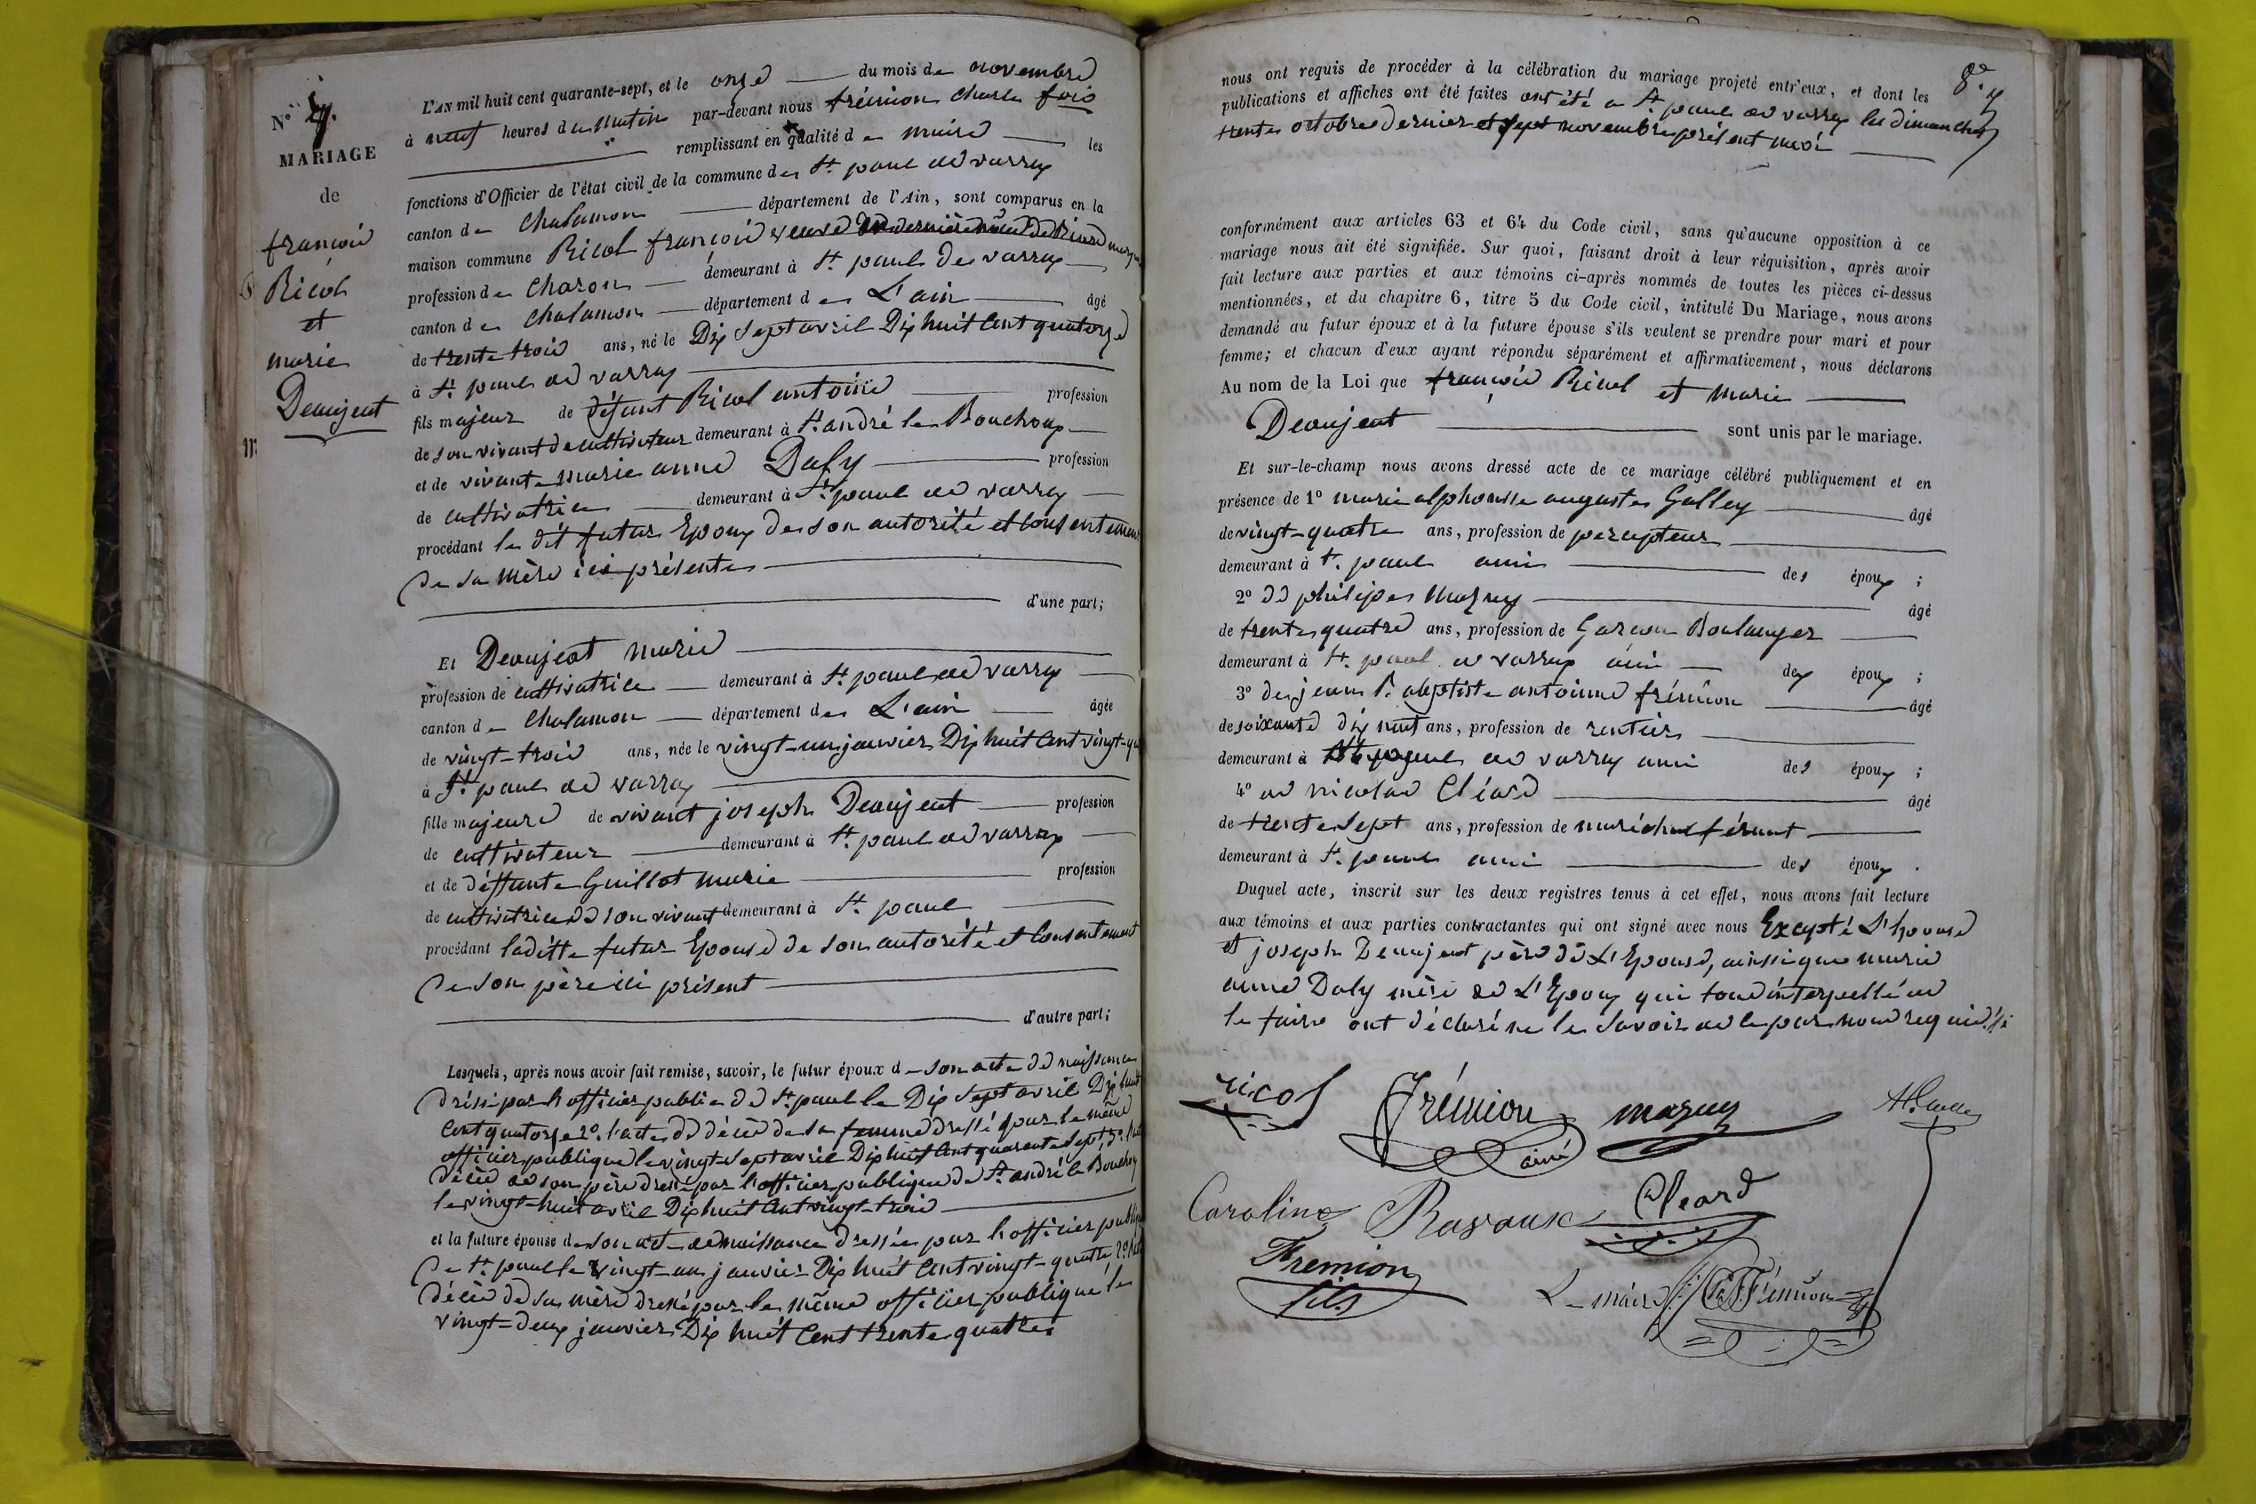 N°
MARIAGE
de
françois
Ricol
et
marie
Deaujeat
L'AN mil huit cent quarante-sept, et le onze du mois de novembre
à neuf heures du matin par-devant nous frémion Charle
remplissant en qualité de maire les
fonctions d'Officier de l'état civil de la commune de St paul de varax
canton de Chalamon département de l'Ain, sont comparus en la
maison commune Ricol françois
profession de Charon demeurant à St paul de varax
canton de Chalamon département de L'ain âgé
de trente trois ans, né le Dix Sept avril Dix huit Cent quatorze
à St paul de varax
fils majeur de défunt Ricol antoine profession
de son vivant de cultivateur demeurant à St andré le Bouchoux
et de vivante marie anne Daly profession
de cultivatrice demeurant à St paul de varax
procédant le dit futur Epoux de son autorité et consentement
de sa mère ici présente
d'une part;
Et Deaujeat marie
profession de cultivatrice demeurant à St paul de varax
canton de Chalamon département de L'ain âgée
de vingt-trois ans, née le vingt-un janvier Dix huit Cent vingt-
à St paul de varax
fille majeure de vivant joseph Deaujeat profession
de cultivateur demeurant à St paul de varax
et de déffunte Guillot marie profession
de cultivatrice de son vivant demeurant à St paul
procédant laditte futur Epouse de son autorité et Consentement
de son père ici présent
d'autre part;
Lesquels, après nous avoir fait remise, savoir, le futur époux de son acte de naissance
dréssé par l'officier public de St paul le Dix Sept avril Dix huit
Cent quatorze 2° l'acte de décès de sa femme dressé par le même
officier publique le vingt Sept avril Dix huit Cent quarante Sept, 3°
décès de son père dressé par l'officier publique de St andré le Bouchoux
le vingt-huit avril Dix huit Cent vingt-trois
et la future épouse de son acte de naissance dressée par l'officier public
de St paul le vingt-un janvier Dix huit Cent vingt-quatre 2°
décès de sa mère dressé par le même officier publique le
vingt-deux janvier Dix huit Cent trente quatre
nous ont requis de procéder à la célébration du mariage projeté entr'eux, et dont les
publications et affiches ont été faites ont été a St paul de varax les dimanches
trente octobre dernier et sept novembre présent mois
conformément aux articles 63 et 64 du Code civil, sans qu'aucune opposition à ce
mariage nous ait été signifiée. Sur quoi, faisant droit à leur réquisition, après avoir
fait lecture aux parties et aux témoins ci-après nommés de toutes les pièces ci-dessus
mentionnées, et du chapitre 6, titre 5 du Code civil, intitulé Du Mariage, nous avons
demandé au futur époux et à la future épouse s'ils veulent se prendre pour mari et pour
femme; et chacun d'eux ayant répondu séparément et affirmativement, nous déclarons
Au nom de la Loi que françois Ricol et marie
Deaujeat sont unis par le mariage.
Et sur-le-champ nous avons dressé acte de ce mariage célébré publiquement et en
présence de 1° marie alphonsse auguste Galley âgé
de vingt-quatre ans, profession de percepteur
demeurant à St paul ami des époux ;
2° de philipes Mazuy âgé
de trente quatre ans, profession de Garcon Boulanger
demeurant à St paul de varax ami des époux ;
3° de jean B. abptiste antoinne frémion âgé
de soixante dix neuf ans, profession de rentier
demeurant à St paul de varax ami des époux ;
4° de nicolas Cléard âgé
de trente Sept ans, profession de maréchal férant
demeurant à St paul ami des époux .
Duquel acte, inscrit sur les deux registres tenus à cet effet, nous avons fait lecture
aux témoins et aux parties contractantes qui ont signé avec nous Excepté L'Epouse
et joseph Deaujeat père de L'Epouse, ainsi que marie
anne Daly mère de L'Epoux qui tous interpellé de
le faire ont déclaré ne le savoir de le par nous requis
ricol Frémion ainé mazuy
Caroline Ravaux Cleard
Fremion fils
Le maire Frémion